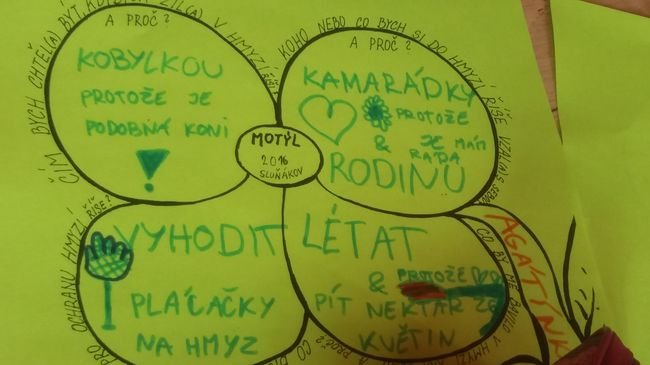 ČÍM BYCH CHTĚL(A) BÝT, KDYBYCH ŽIL(A) V HMYZÍ ŘÍŠI
A PROČ?
KOBYLKOU
PROTOŽE JE
PODOBNÁ KONI
KOHO NEBO CO BYCH SI DO HMYZÍ ŘÍŠE VZAL(A) S SEBOU
A PROČ?
KAMARÁDKY
PROTOŽE
& JE MÁM
RÁDA
RODINU
MOTÝL
2016
SLUŇÁKOV
PRO OCHRANU HMYZÍ ŘÍŠE?
VYHODIT
PLÁCAČKY
NA HMYZ
CO
CO BY MĚ BAVILO V HMYZÍ
PROČ?
LÉTAT
& PROTOŽE
PÍT NEKTAR ZE
KVĚTIN
AGATINK